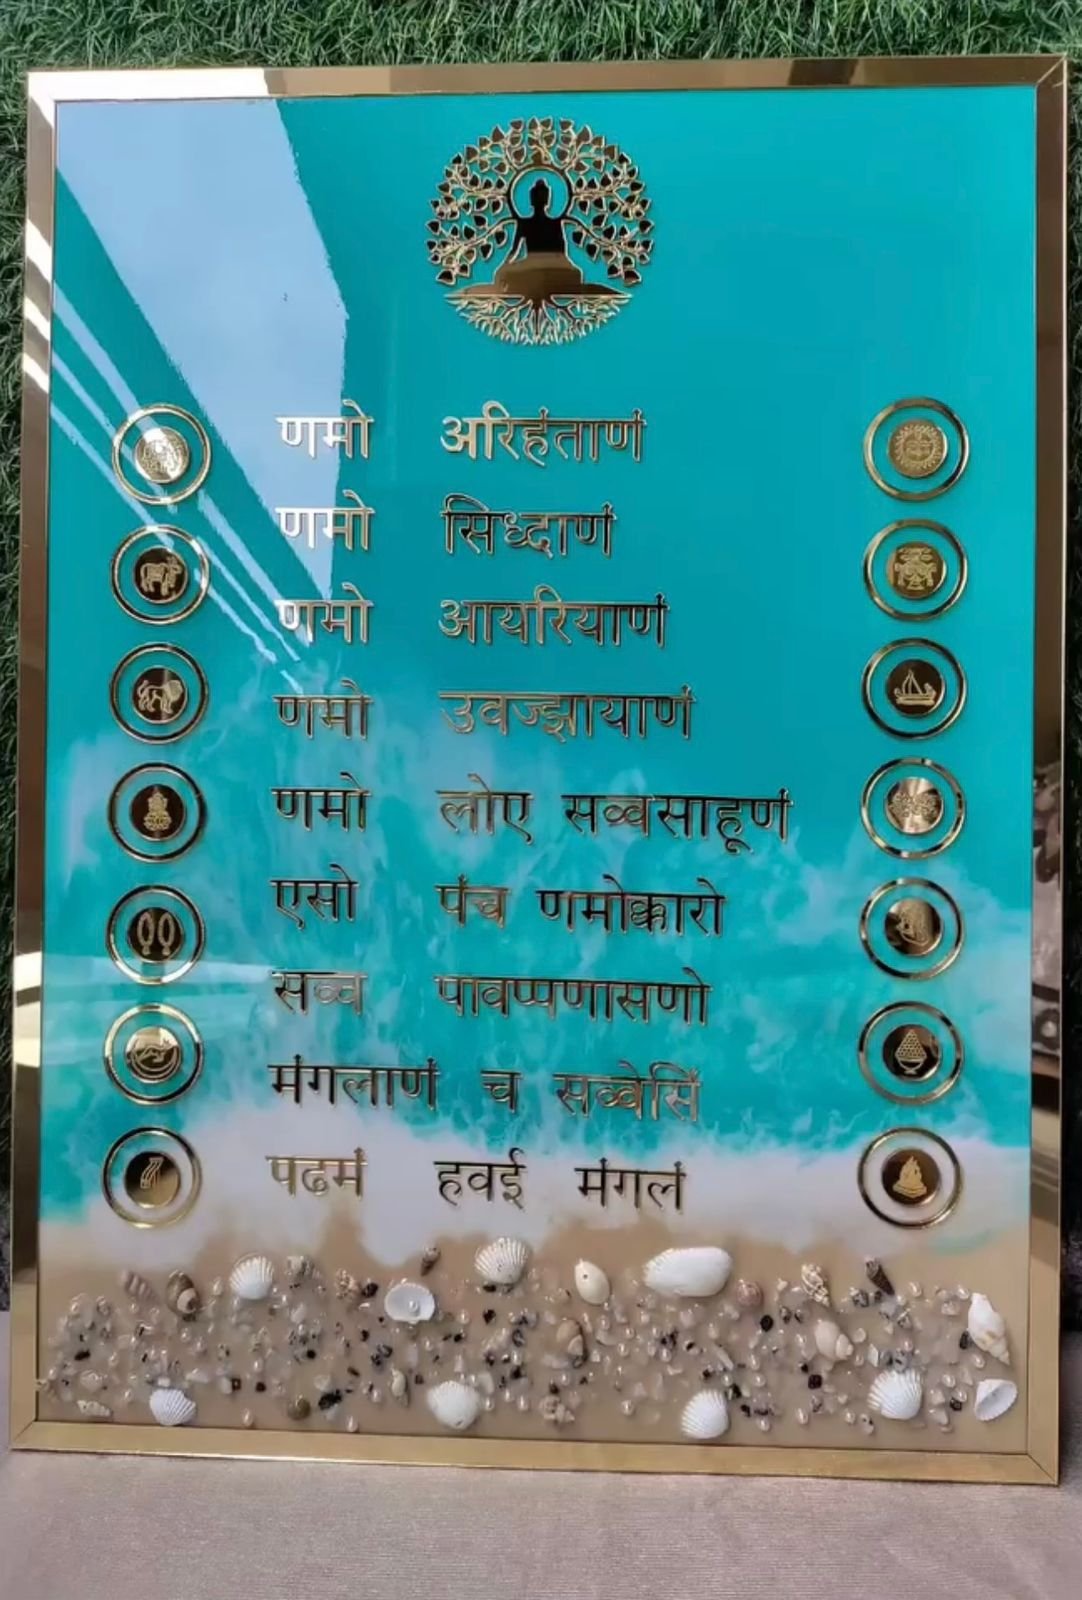 णमो अरिहंताणं
णमो सिध्दाणं
णमो आयरियाणं
णमो उवज्झायाणं
णमो लोए सव्वसाहूणं
एसो पंच णमोक्कारो
सव्व पावप्पणासणो
मंगलाणं च सव्वेसिं
पढमं हवई मंगलं